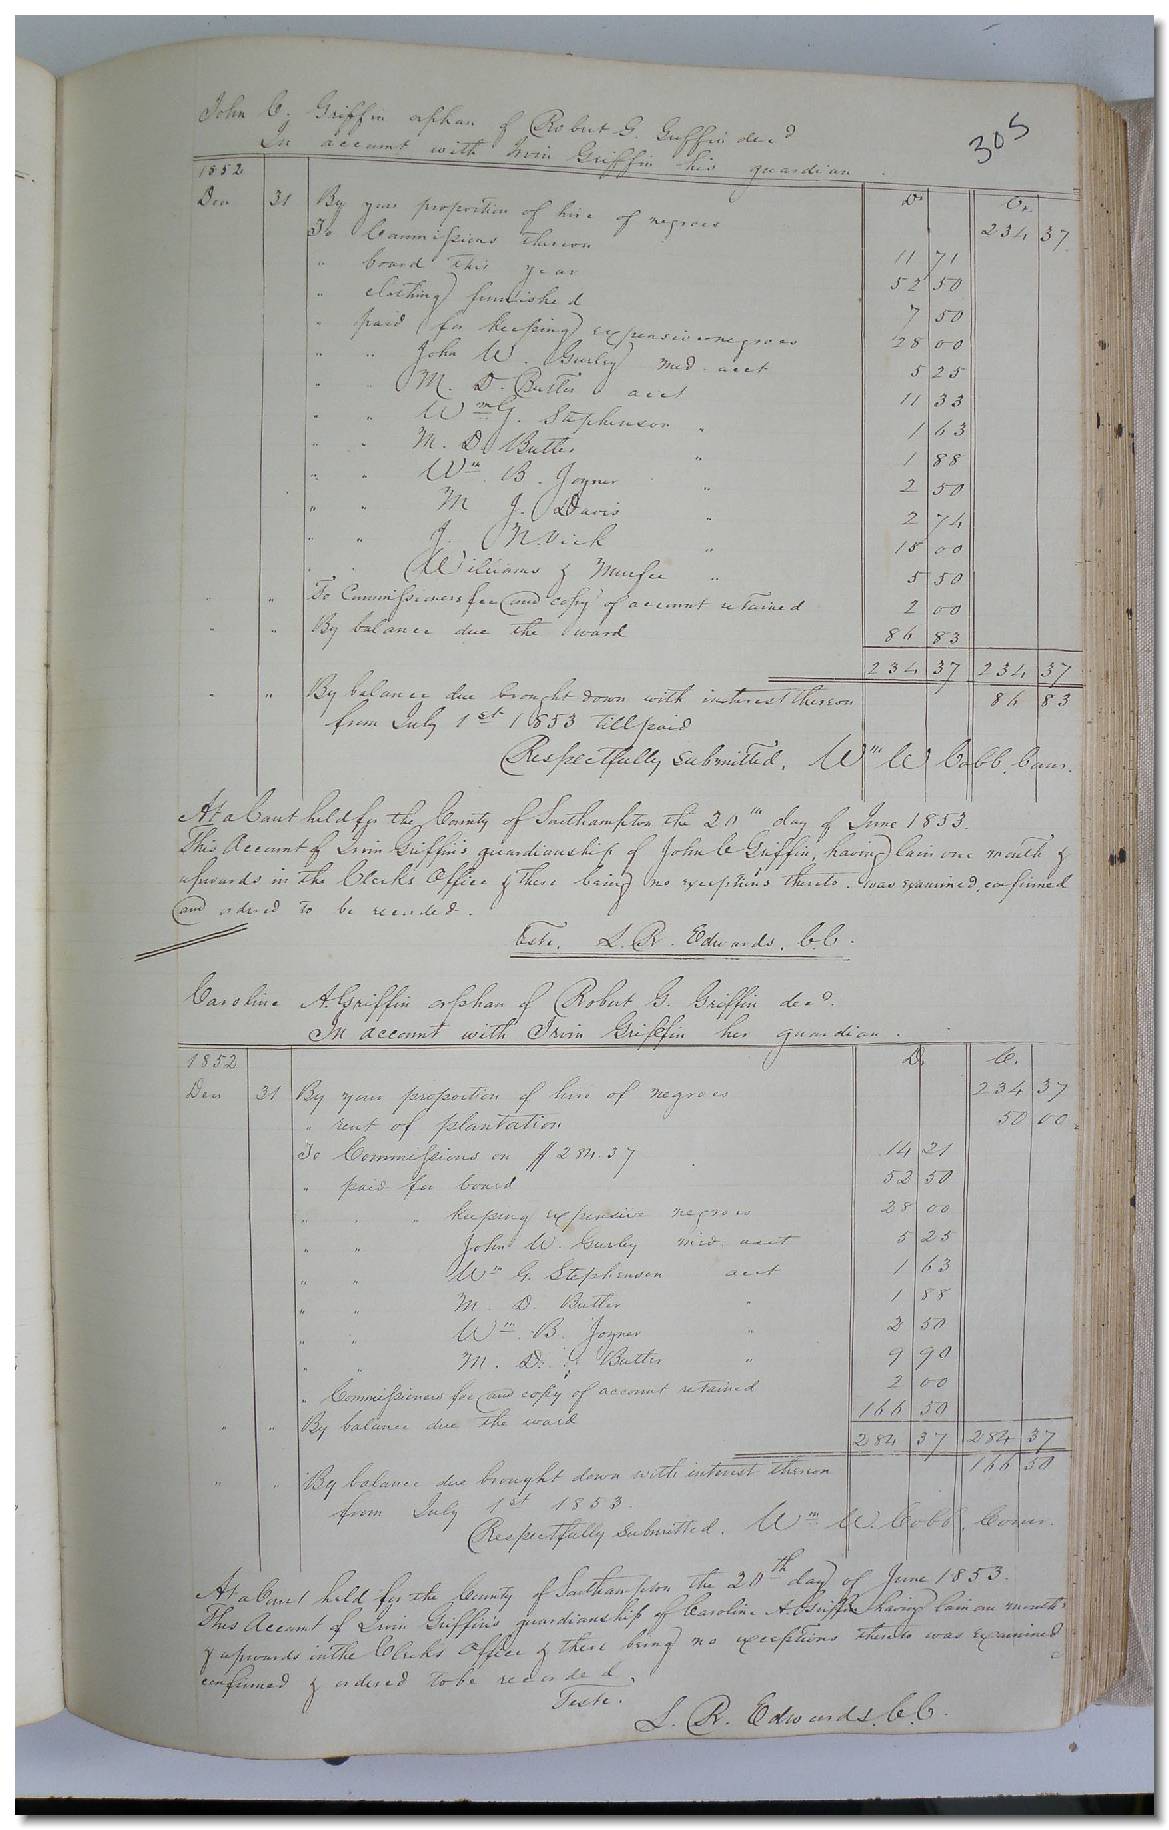 305
John C. Griffin orphan of Robert G. Griffin decd
In account with Irvin Griffin his guardian.
1852 Dr. Cr.
Dec 31 By your proportion of hire of negroes 234 37
To Commissions thereon 11 71
" board this year 52 50
" clothing furnished 7 50
" paid for keeping expensive negroes 28 00
" " John W. Gurley med. acct 5 25
" " M. D. Butler acct 11 33
" " Wm G. Stephenson " 1 63
" " M. D. Butler " 1 88
" " Wm. B. Joyner " 2 50
" " M J. Davis " 2 74
" " J. N. Vick " 15 00
" " Williams & Murfee " 5 50
" " To Commissioners fee and copy of account retained 2 00
" " By balance due the ward 86 83
234 37 234 37
" " By balance due brought down with interest thereon 86 83
from July 1st 1853 till paid
Respectfully submitted, Wm W Cobb, Comr.
At a Court held for the County of Southampton the 20th day of June 1853.
This Account of Irvin Griffin's guardianship of John C Griffin, having lain one month &
upwards in the Clerks Office & there being no exceptions thereto. was examined, confirmed
and ordered to be recorded.
Teste. L. R. Edwards, C.C.
Caroline A. Griffin orphan of Robert G. Griffin decd.
In account with Irvin Griffin her guardian.
1852 Dr. Cr.
Dec 31 By your proportion of hire of negroes 234 37
" rent of plantation 50 00
To Commissions on $284.37 14 21
" paid for board 52 50
" " " keeping expensive negroes 28 00
" " John W. Gurley med. acct 5 25
" " Wm G. Stephenson acct 1 63
" " M. D. Butler " 1 88
" " Wm. B. Joyner " 2 50
" " M. D. Butler " 9 90
" Commissioners fee and copy of account retained 2 00
" " By balance due the ward 166 50
284 37 284 37
" " By balance due brought down with interest thereon 166 50
from July 1st 1853.
Respectfully submitted. Wm W. Cobb, Comr.
At a Court held for the County of Southampton the 20th day of June 1853.
This Account of Irvin Griffin's guardianship of Caroline A Griffin having lain one month
& upwards in the Clerks Office & there being no exceptions thereto was examined
confirmed & ordered to be recorded.
Teste.
L. R. Edwards. C.C.